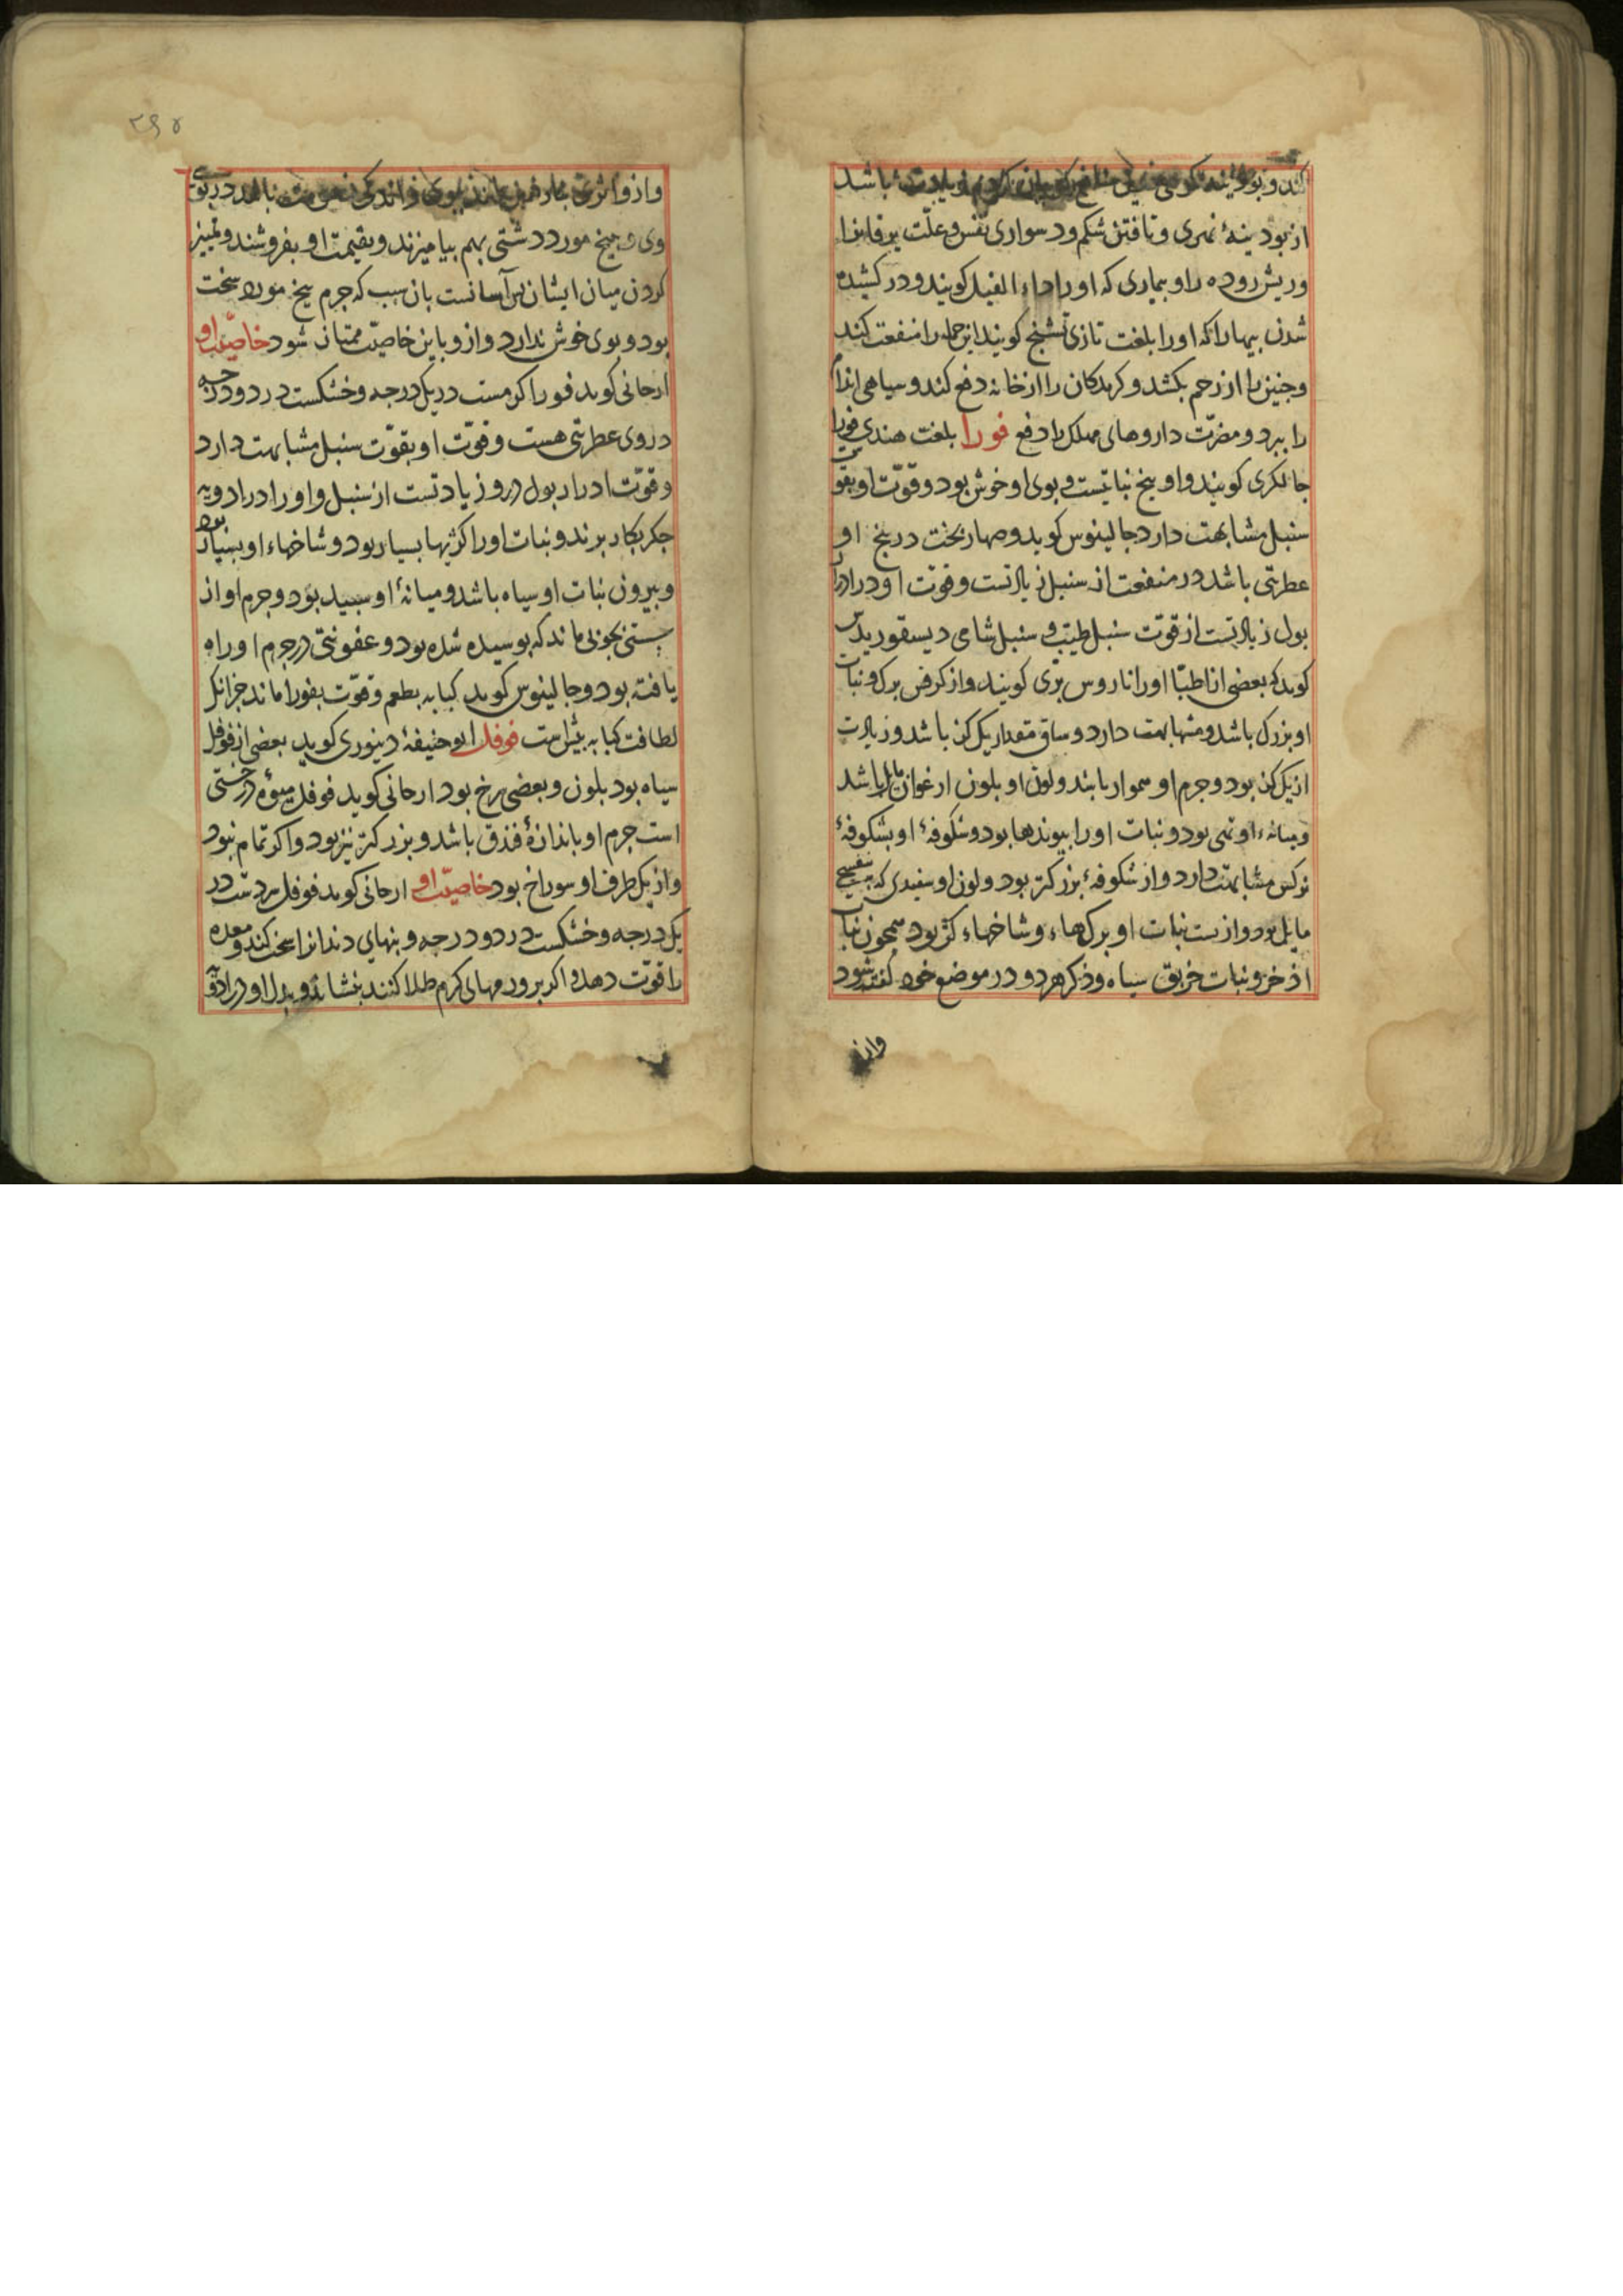 کند و بوذینه کوهی باشد
از بودینهٔ نهری و تافتن شکم و دسواری نفس و علّت یرقانرا
و ریش روده را و بیماری که او را داء الفیل کویند و در کشیده
شدن پیها را که او را بلغت تازی تشنج کویند این جمله را منفعت کند
و جنین را از رحم بکشد و کزندکان را از خانه دفع کند و سیاهی اندام
را ببرد و مضرّت داروهای مهلک را دفع فورا بلغت هندی فورا
جالکری کویند و او بیخ نباتیست و بوی او خوش بود و قوّت او بقوّت
سنبل مشابهت دارد جالینوس کوید و صهاربخت در بیخ او
عطریتی باشد در منفعت از سنبل زیادتست و قوت او در ادرار
بول زیادتست از قوّت سنبل طیّب و سنبل شامی دیسقوریدس
کوید که بعضی از اطبّا او را ناروس برّی کویند و از کرفس برک و نبات
او بزرک باشد و مشابهت دارد و ساق مقدار یک کز باشد و زیادت
از یک کز بود و جرم او هموار باشد و لون او بلون ارغوان مایل باشد
و میانهٔ او تهی بود و نبات او را پیوندها بود و شکوفهٔ او بشکوفهٔ
نرکس مشابهت دارد و از شکوفهٔ بزرکتر بود و لون او سفیدی که ببنفسجی
مایل بود و از بست نبات او برک‌ها و شاخهاء کژ بود همچون نبات
اذخر و نبات خربق سیاه و ذکر هر دو در موضع خود کفته شود
واز
۲۶۴
و از و اثری در بوی
وی و بیخ مورد دشتی بهم بیامیزند و بقیمت او بفروشند و تمیز
کردن میان ایشان بس آسانست بان سبب که جرم بیخ مورد سخت
بود و بوی خوش ندارد و از و باین خاصیّت ممتاز شود خاصیّت او
ارجانی کوید فورا کرمست در یک درجه و خشکست در دو درجه
در وی عطریتی هست و قوّت او بقوّت سنبل مشابهت دارد
و قوّت ادرار بول درو زیادتست از سنبل و او را در ادویه
جکر بکار برند و نبات او را کژیها بسیار بود و شاخهاء او بسیار بود
و بیرون نبات او سیاه باشد و میانهٔ او سبید بود و جرم او از
سستی بچوبی ماند که بوسیده شده بود و عفونتی در جرم او راه
یافته بود و جالینوس کوید کبابه بطعم و قوّت بفورا ماند جز انک
لطافت کبابه بیشتر است فوفل ابو حنیفهٔ دینوری کوید بعضی از فوفل
سیاه بود بلون و بعضی سرخ بود ارجانی کوید فوفل میوهٔ درختی
است جرم او باندازهٔ فندق باشد و بزرکتر نیز بود و اکر تمام نبود
و از یک طرف او سوراخ بود خاصیّت او ارجانی کوید فوفل سردست در
یک درجه و خشکست در دو درجه و بنهای دندانرا سخت کند و معده
را قوّت دهد و اکر بر ورمهای کرم طلا کنند بنشاند و بدل او در ادویه